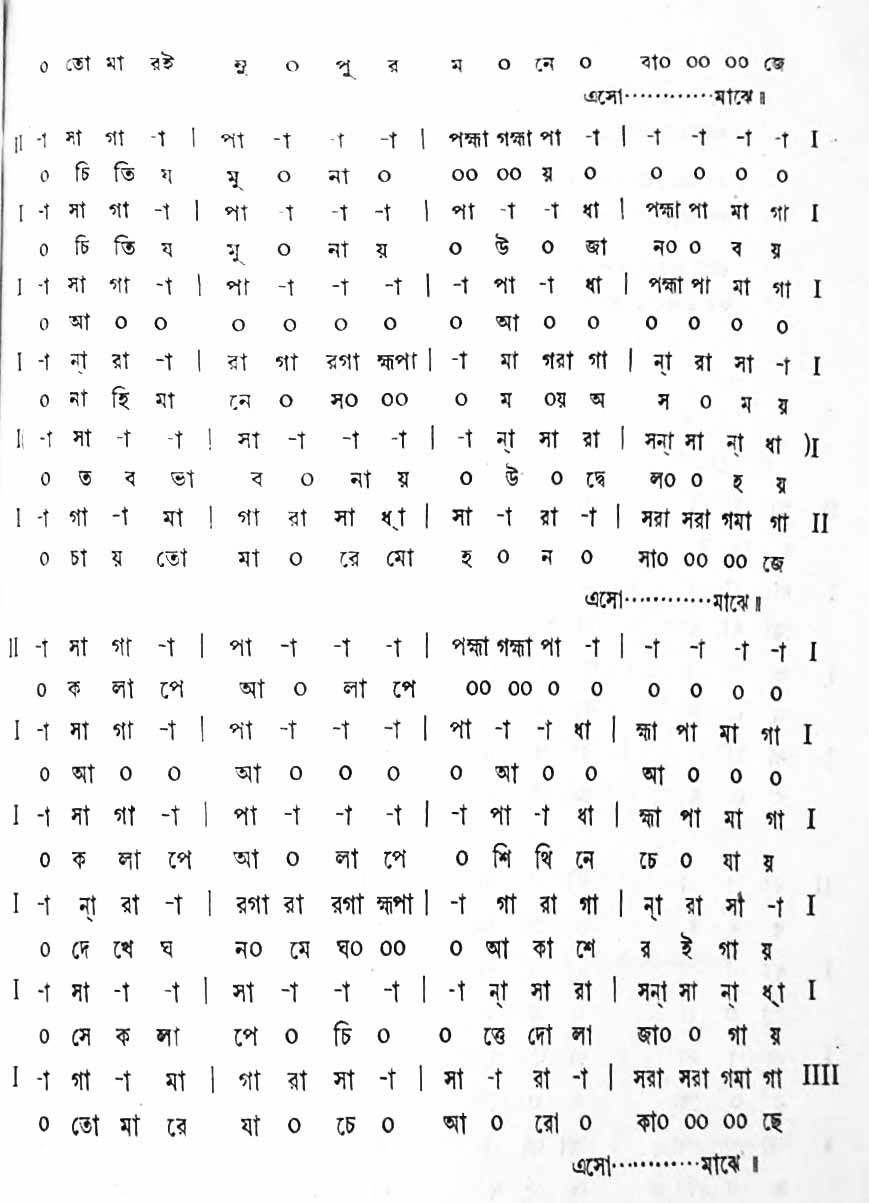 ০ তো মা রই নু ০ পু র ম ০ নে ০ বা০ ০০ ০০ জে
এসো············মাঝে॥
II -া সা গা -া | পা -া -া -া | পহ্মা গহ্মা পা -া | -া -া -া -া I
০ চি তি য মু ০ না ০ ০০ ০০ য় ০ ০ ০ ০ ০
I -া সা গা -া | পা -া -া -া | পা -া -া ধা | পহ্মা পা মা গা I
০ চি তি য মু ০ না য় ০ উ ০ জা ন০ ০ ব য়
I -া সা গা -া | পা -া -া -া | -া পা -া ধা | পহ্মা পা মা গা I
০ আ ০ ০ ০ ০ ০ ০ ০ আ ০ ০ ০ ০ ০ ০
I -া না্ রা -া | রা গা রগা হ্মপা | -া মা গরা গা | না্ রা সা -া I
০ না হি মা নে ০ স০ ০০ ০ ম ০য় অ স ০ ম য়
I -া সা -া -া | সা -া -া -া | -া না্ সা রা | সনা্ সা না্ ধা )I
০ ত ব ভা ব ০ না য় ০ উ ০ দ্বে ল০ ০ হ য়
I -া গা -া মা | গা রা সা ধা্ | সা -া রা -া | সরা সরা গমা গা II
০ চা য় তো মা ০ রে মো হ ০ ন ০ সা০ ০০ ০০ জে
এসো············মাঝে॥
II -া সা গা -া | পা -া -া -া | পহ্মা গহ্মা পা -া | -া -া -া -া I
০ ক লা পে আ ০ লা পে ০০ ০০ ০ ০ ০ ০ ০ ০
I -া সা গা -া | পা -া -া -া | পা -া -া ধা | হ্মা পা মা গা I
০ আ ০ ০ আ ০ ০ ০ ০ আ ০ ০ আ ০ ০ ০
I -া সা গা -া | পা -া -া -া | -া পা -া ধা | হ্মা পা মা গা I
০ ক লা পে আ ০ লা পে ০ শি থি নে চে ০ যা য়
I -া না্ রা -া | রগা রা রগা হ্মপা | -া গা রা গা | না্ রা সা -া I
০ দে খে ঘ ন০ মে ঘ০ ০০ ০ আ কা শে র ই গা য়
I -া সা -া -া | সা -া -া -া | -া না্ সা রা | সনা্ সা না্ ধা্ I
০ সে ক লা পে ০ চি ০ ০ ত্তে দো লা জা০ ০ গা য়
I -া গা -া মা | গা রা সা -া | সা -া রা -া | সরা সরা গমা গা IIII
০ তো মা রে যা ০ চে ০ আ ০ রো ০ কা০ ০০ ০০ ছে
এসো············মাঝে॥